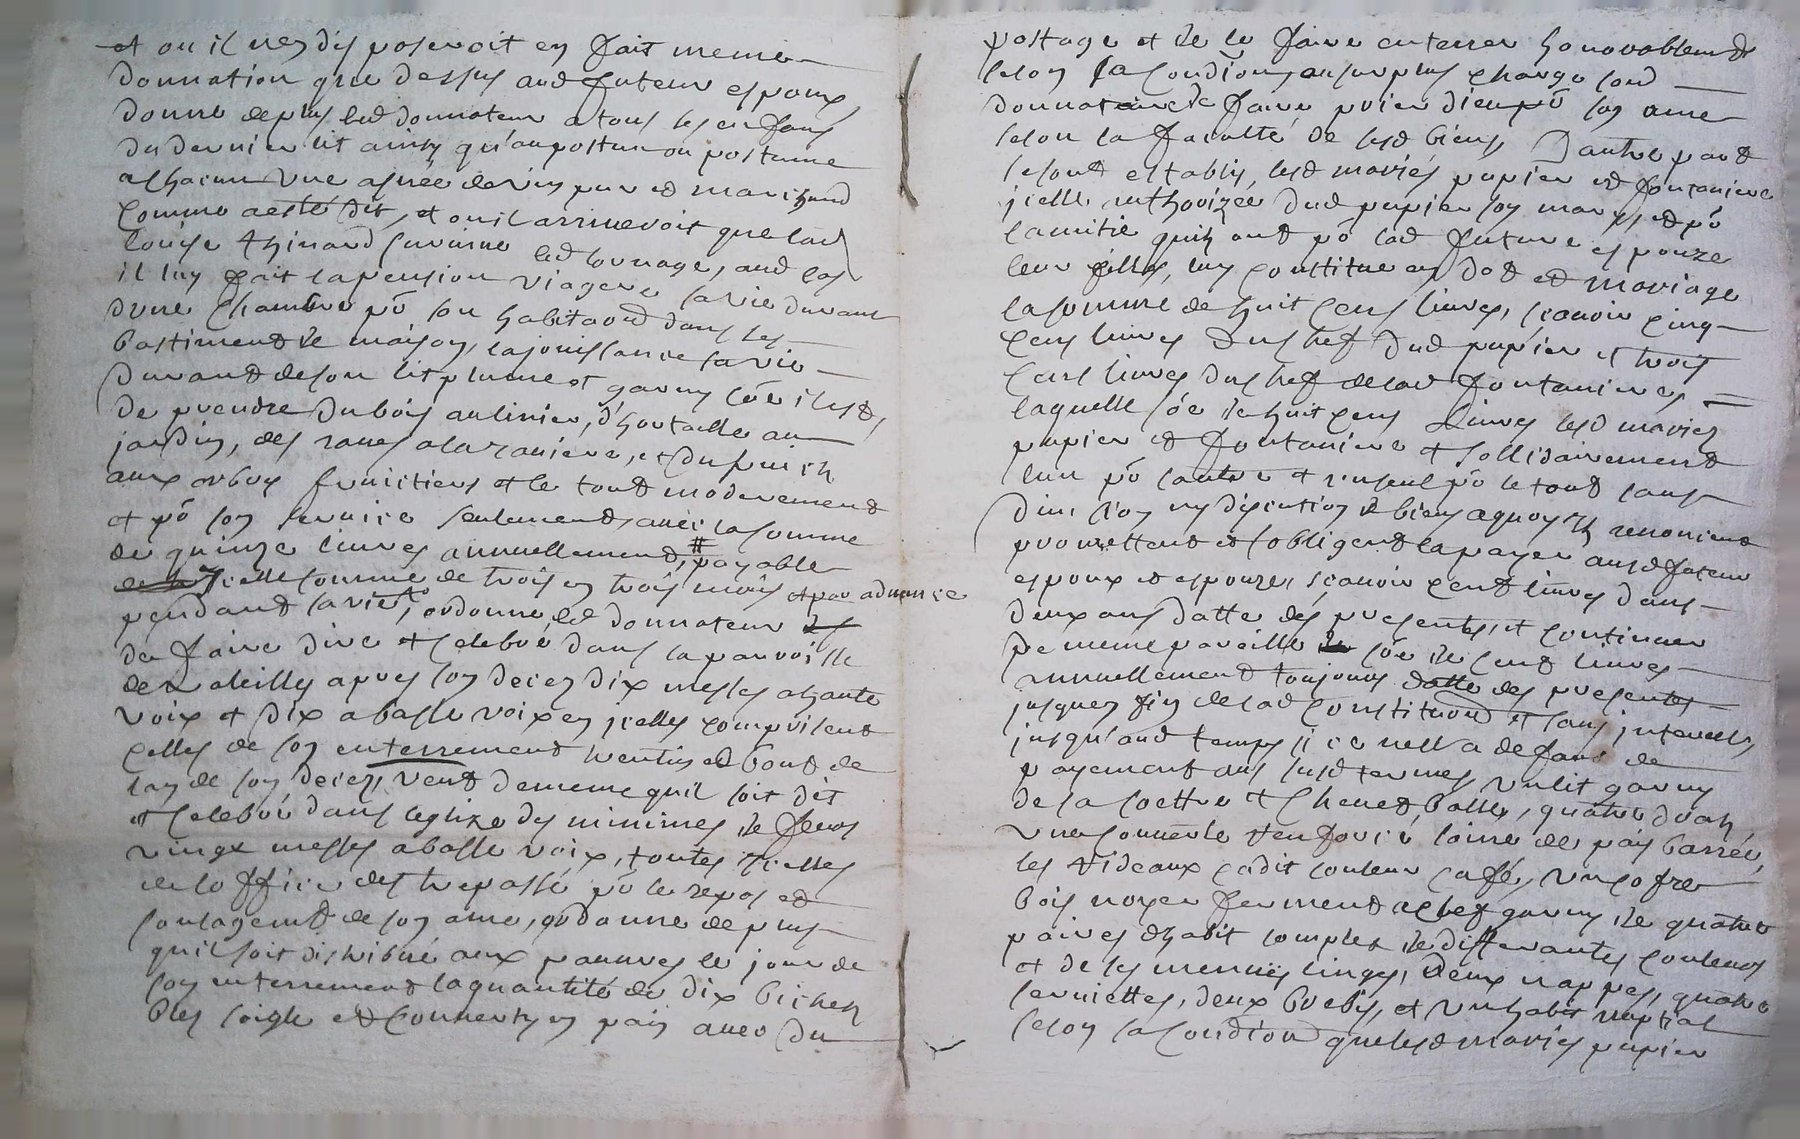 et ou il nen disposeroit en fait meme
donnation que dessus aud futeur espoux,
donne de plus led donnateur a tous les enfans
du dernier lit ainsy qu'au postume ou postume
a chacun une asnée de vin pur et marchand
comme a esté dit, et ou il arriveroit que lad
Louise Thinard survive led tournage, aud cas
il luy fait la pension viagere sa vie durant
dune chambre pō son habitaōn dans ses
bastiment de maison, la jouissance sa vie
durant de son lit plume et garny
de prendre du bois au linier, d'hortaille au
jardin, des raves a la raviere, et du fruich
aux arbres fruictiers et le tout moderement
et pō son service seulement, avec la somme
de quinze livres annuellement, # payable
icelle somme de trois en trois mois et par advance
pendant sa vie, ordonne led donnateur
de faire dire et celebré dans la parroisse
de apres son deces dix messes a haute
voix et dix a basse voix en icelles comprisent
celles de son enterrement trentin et bout de
lan de son deces, veut de meme quil soit dit
et celebré dans leglize des minimes de feurs
vingt messes a basse voix, toutes icelles
de loffice des trepassé pō le repos et
soulagemt de son ame, ordonne de plus
quil soit distribué aux pauvres le jour de
son enterrement la quantité de dix bichez
bled soigle et convertyn en pain avec du
postage et de le faire enterrer honorablemt
selon sa condion au surplus charge lond
donnataire de faire prier dieu pō son ame
selon la faculté de sesd biens, Dautre part
se sont establis, lesd mariés papier et fontaniere
icelle authorizée dud papier son mary, et pō
lamitie quilz ont pō lad future espouze
leur fille, luy constitue en dot et mariage
la somme de huit cens livres, scavoir cinq
cens livres du chef dud papier et trois
cens livres du chef de lad fontaniere,
laquelle sōe de huit cens livres lesd mariez
papier et fontaniere et sollidairement
lun pō lautre et un seul pō le tout sans
division ny discution de biens a quoy ilz renoncent
promettent et sobligent la payer ausd futeur
espoux et espouze, scavoir cent livres dans
deux ans datte des presentes, et continuer
de meme pareille sōe de cent livres
annuellement toujours datte des presentes
jusques fin de lad constituōn et sans interests
jusqu'aud temps si ce nest a defaut de
payement aus susd termes, un lit garny
de sa coettre et chevet balle, quatre drap
une couverte laine de païs barrée,
les rideaux cadit couleur café, un cofre
bois noyer fermant a clef garny de quatre
paires dhabit complet de differantes couleurs
et de ses menües linges, deux nappes, quatre
serviettes, deux brebis, et un habit nuptial
selon sa condion que lesd mariés papier